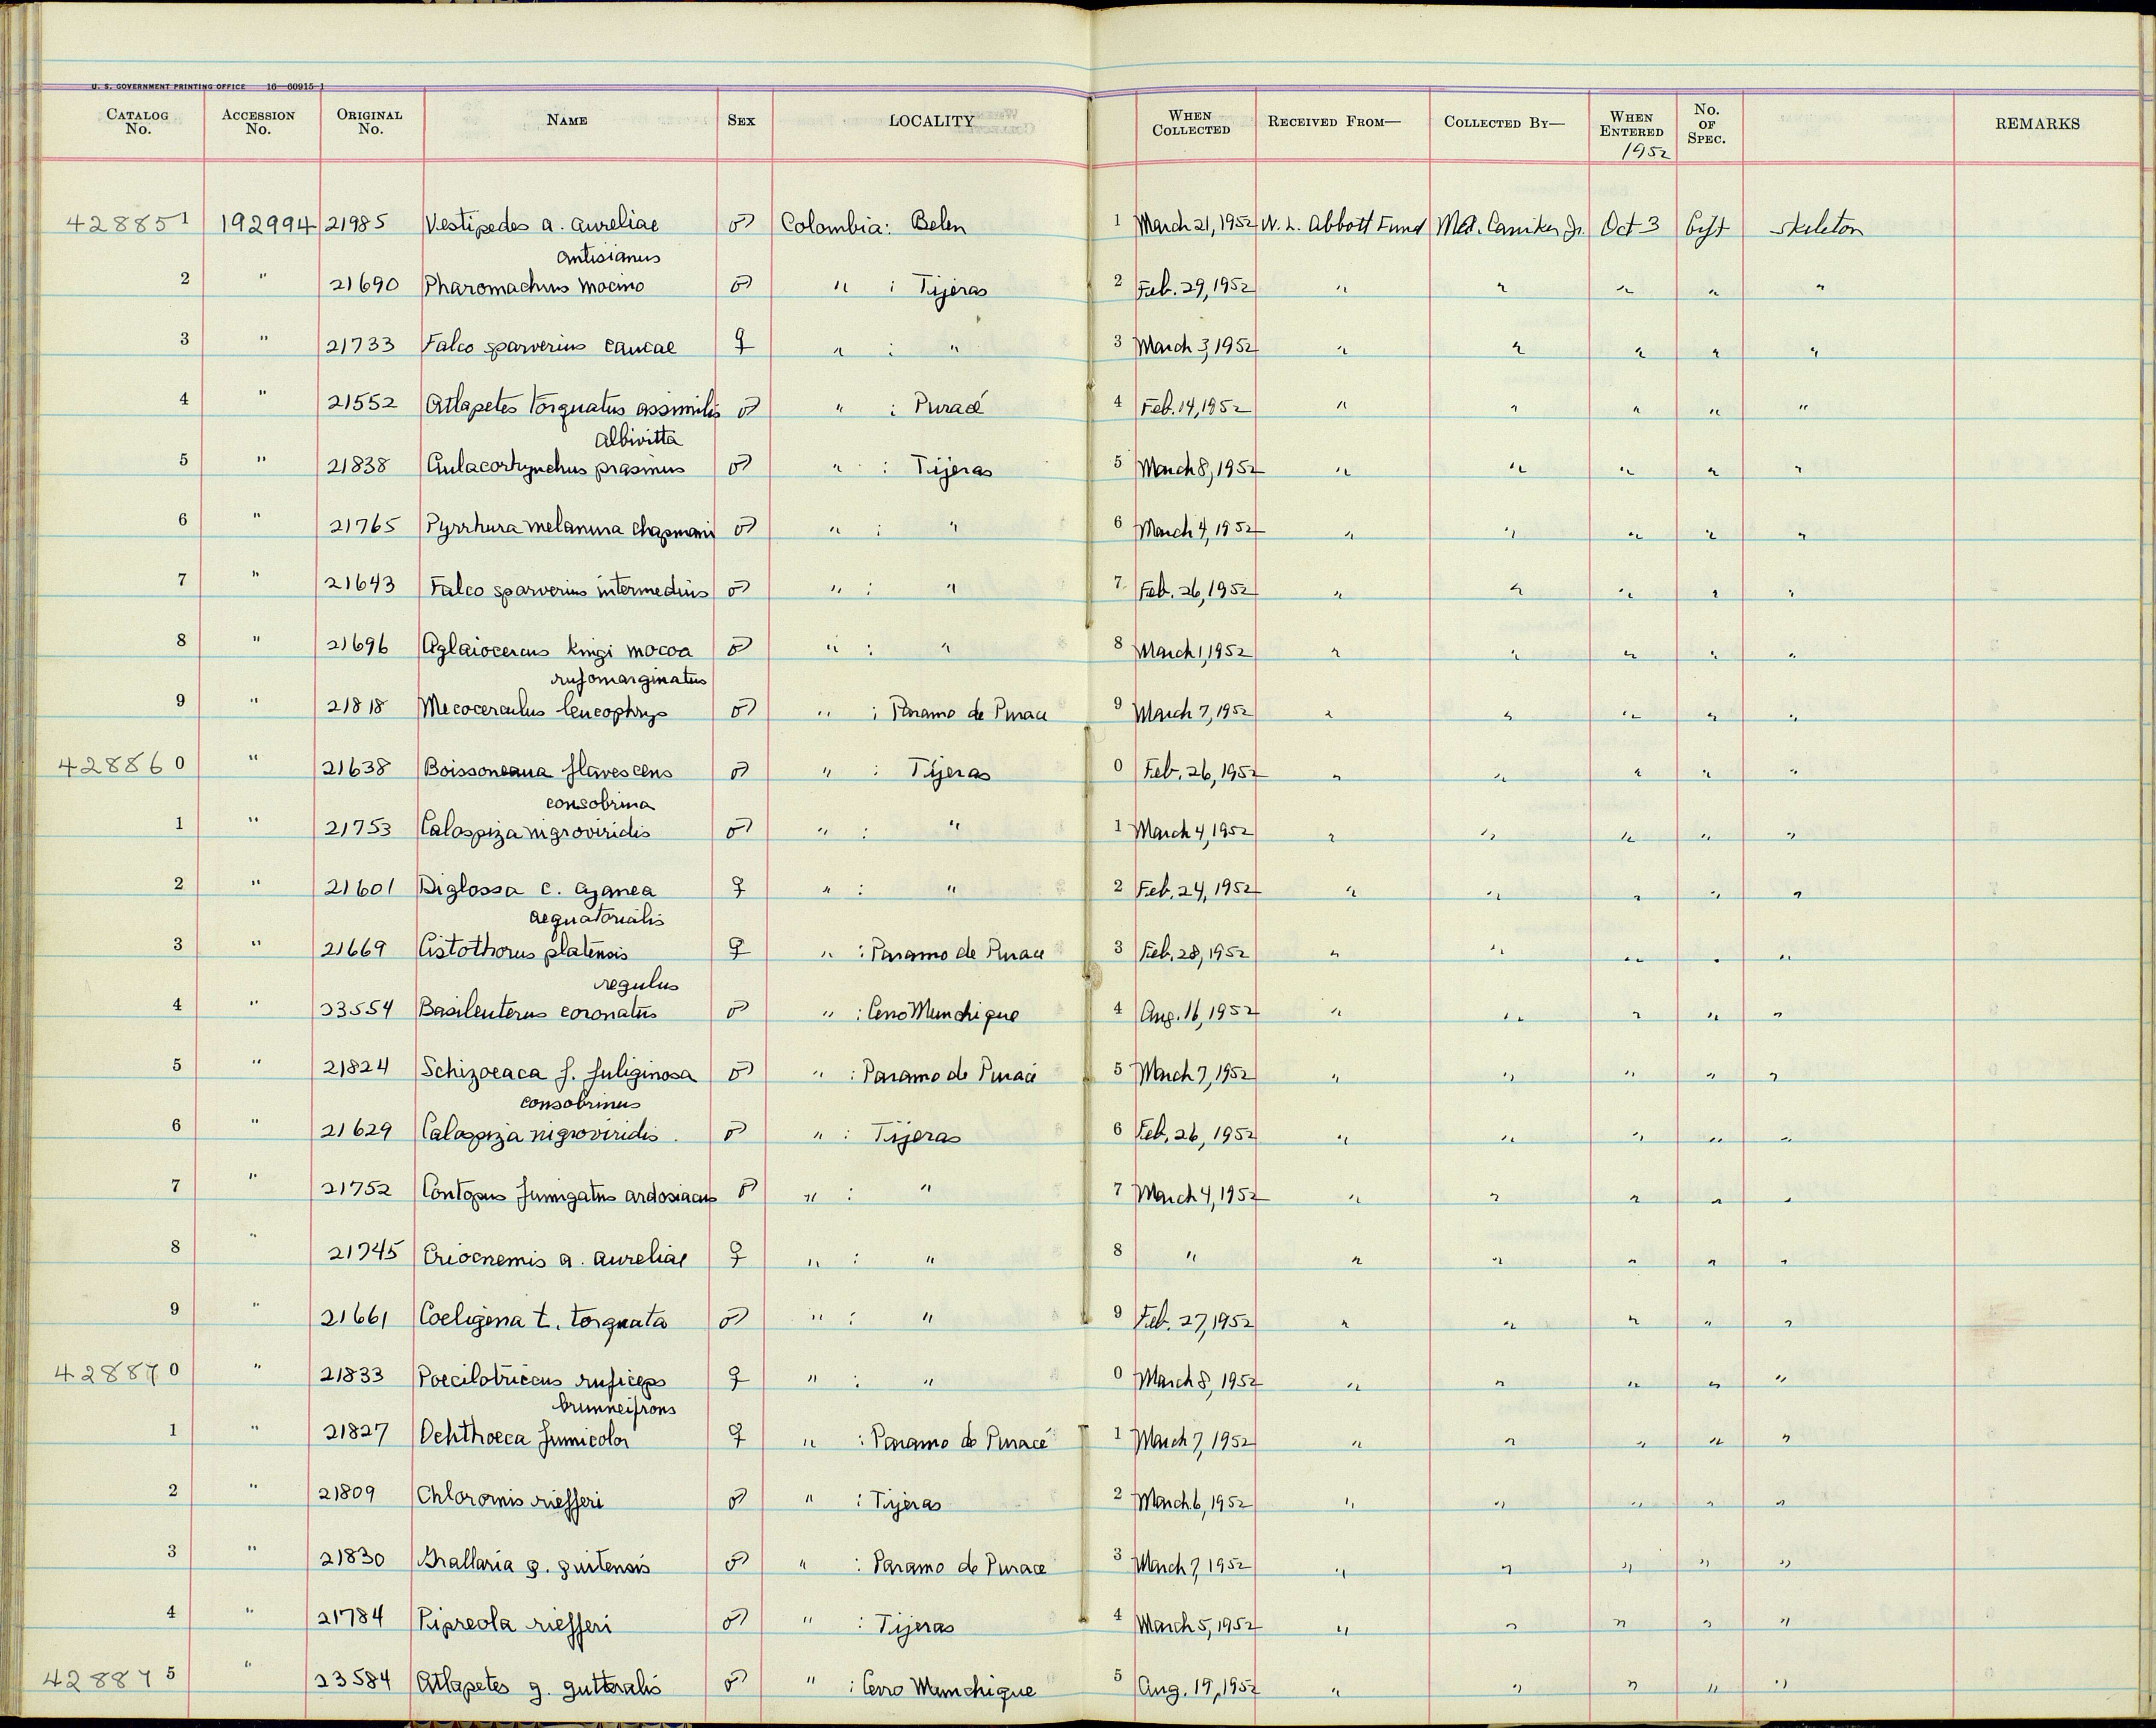 U. S. GOVERNMENT PRINTING OFFICE 16—60915-1
CATALOG No. ACCESSION No. ORIGINAL No. NAME SEX LOCALITY WHEN COLLECTED RECEIVED FROM— COLLECTED BY— WHEN ENTERED 1952 No. OF SPEC. REMARKS
428851 192994 21985 Vestipedes a. aureliae ♂ Colombia: Belen 1 March 21, 1952 W. L. Abbott Fund M.A. Carriker Jr. Oct 3 Gift Skeleton
antisianus
2 " 21690 Pharomachus mocino ♂ " : Tijeras 2 Feb. 29, 1952 " " " " "
3 " 21733 Falco sparverius caucae ♀ " : " 3 March 3, 1952 " " " " "
4 " 21552 Atlapetes torquatus assimilis ♂ " : Puracé 4 Feb. 14, 1952 " " " " "
albivitta
5 " 21838 Aulacorhynchus prasinus ♂ " : Tijeras 5 March 8, 1952 " " " " "
6 " 21765 Pyrrhura melanura chapmani ♂ " : " 6 March 4, 1952 " " " " "
7 " 21643 Falco sparverius intermedius ♂ " : " 7 Feb. 26, 1952 " " " " "
8 " 21696 Aglaiocercus kingi mocoa ♂ " : " 8 March 1, 1952 " " " " "
rufomarginatus
9 " 21818 Mecocerculus leucophrys ♂ " : Paramo de Purace 9 March 7, 1952 " " " " "
428860 " 21638 Boissoneaua flavescens ♂ " : Tijeras 0 Feb. 26, 1952 " " " " "
consobrina
1 " 21753 Calospiza nigroviridis ♂ " : " 1 March 4, 1952 " " " " "
2 " 21601 Diglossa c. cyanea ♀ " : " 2 Feb. 24, 1952 " " " " "
aequatorialis
3 " 21669 Cistothorus platensis ♀ " : Paramo de Purace 3 Feb. 28, 1952 " " " " "
regulus
4 " 23554 Basileuterus coronatus ♂ " : Cerro Munchique 4 Aug. 16, 1952 " " " " "
5 " 21824 Schizoeaca f. fuliginosa ♂ " : Paramo de Purace 5 March 7, 1952 " " " " "
consobrinus
6 " 21629 Calospiza nigroviridis ♂ " : Tijeras 6 Feb. 26, 1952 " " " " "
7 " 21752 Contopus fumigatus ardosiacus ♂ " : " 7 March 4, 1952 " " " " "
8 " 21745 Eriocnemis a. aureliae ♀ " : " 8 " " " " " "
9 " 21661 Coeligena t. torquata ♂ " : " 9 Feb. 27, 1952 " " " " "
428870 " 21833 Poecilotriccus ruficeps ♀ " : " 0 March 8, 1952 " " " " "
brunneifrons
1 " 21827 Ochthoeca fumicolor ♀ " : Paramo de Puracé 1 March 7, 1952 " " " " "
2 " 21809 Chlorornis riefferi ♂ " : Tijeras 2 March 6, 1952 " " " " "
3 " 21830 Grallaria q. quitensis ♂ " : Paramo de Purace 3 March 7, 1952 " " " " "
4 " 21784 Pipreola riefferi ♂ " : Tijeras 4 March 5, 1952 " " " " "
428875 " 23584 Atlapetes g. gutteralis ♂ " : Cerro Munchique 5 Aug. 19, 1952 " " " " "